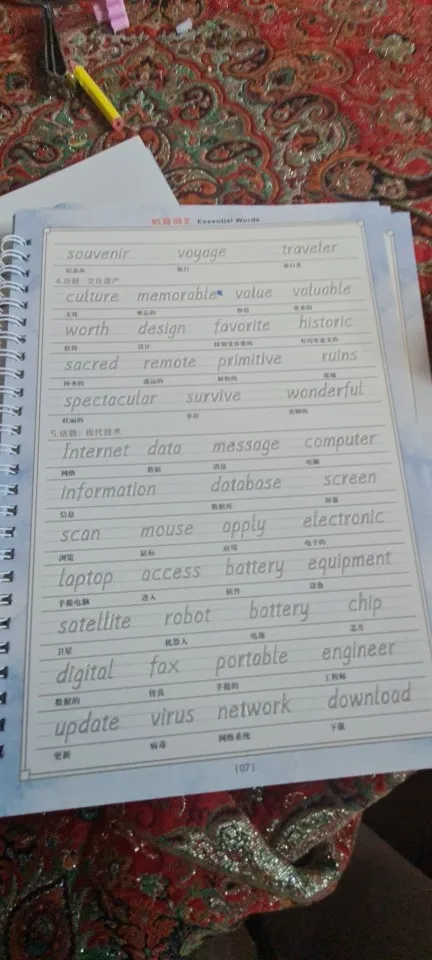 必背词汇 Essential Words
souvenir voyage traveler
纪念品 旅行 旅行者
4.话题：文化遗产
culture memorable value valuable
文化 难忘的 价值 贵重的
worth design favorite historic
值得 设计 有历史意义的
sacred remote primitive ruins
神圣的 遥远的 原始的 废墟
spectacular survive wonderful
壮丽的 幸存 美妙的
5.话题：现代技术
Internet data message computer
网络 数据 消息 电脑
information database screen
信息 数据库 屏幕
scan mouse apply electronic
浏览 鼠标 应用 电子的
laptop access battery equipment
手提电脑 进入 软件 设备
satellite robot battery chip
卫星 机器人 电池 芯片
digital fax portable engineer
数据的 传真 手提的 工程师
update virus network download
更新 病毒 网络系统 下载
(07)